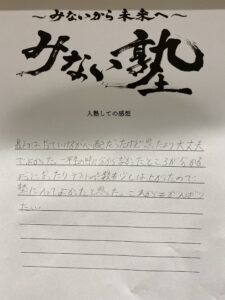 ～みないから未来へ～
みない塾
入塾しての感想
最初は、ちていけるか心配だったけど思ったより大丈夫
でよかった。一年生の時に分からなかったところが分かる
ようになったりテストの点数も少しは上がったので
塾に入ってよかったと思った。これからもがんばり
たい。